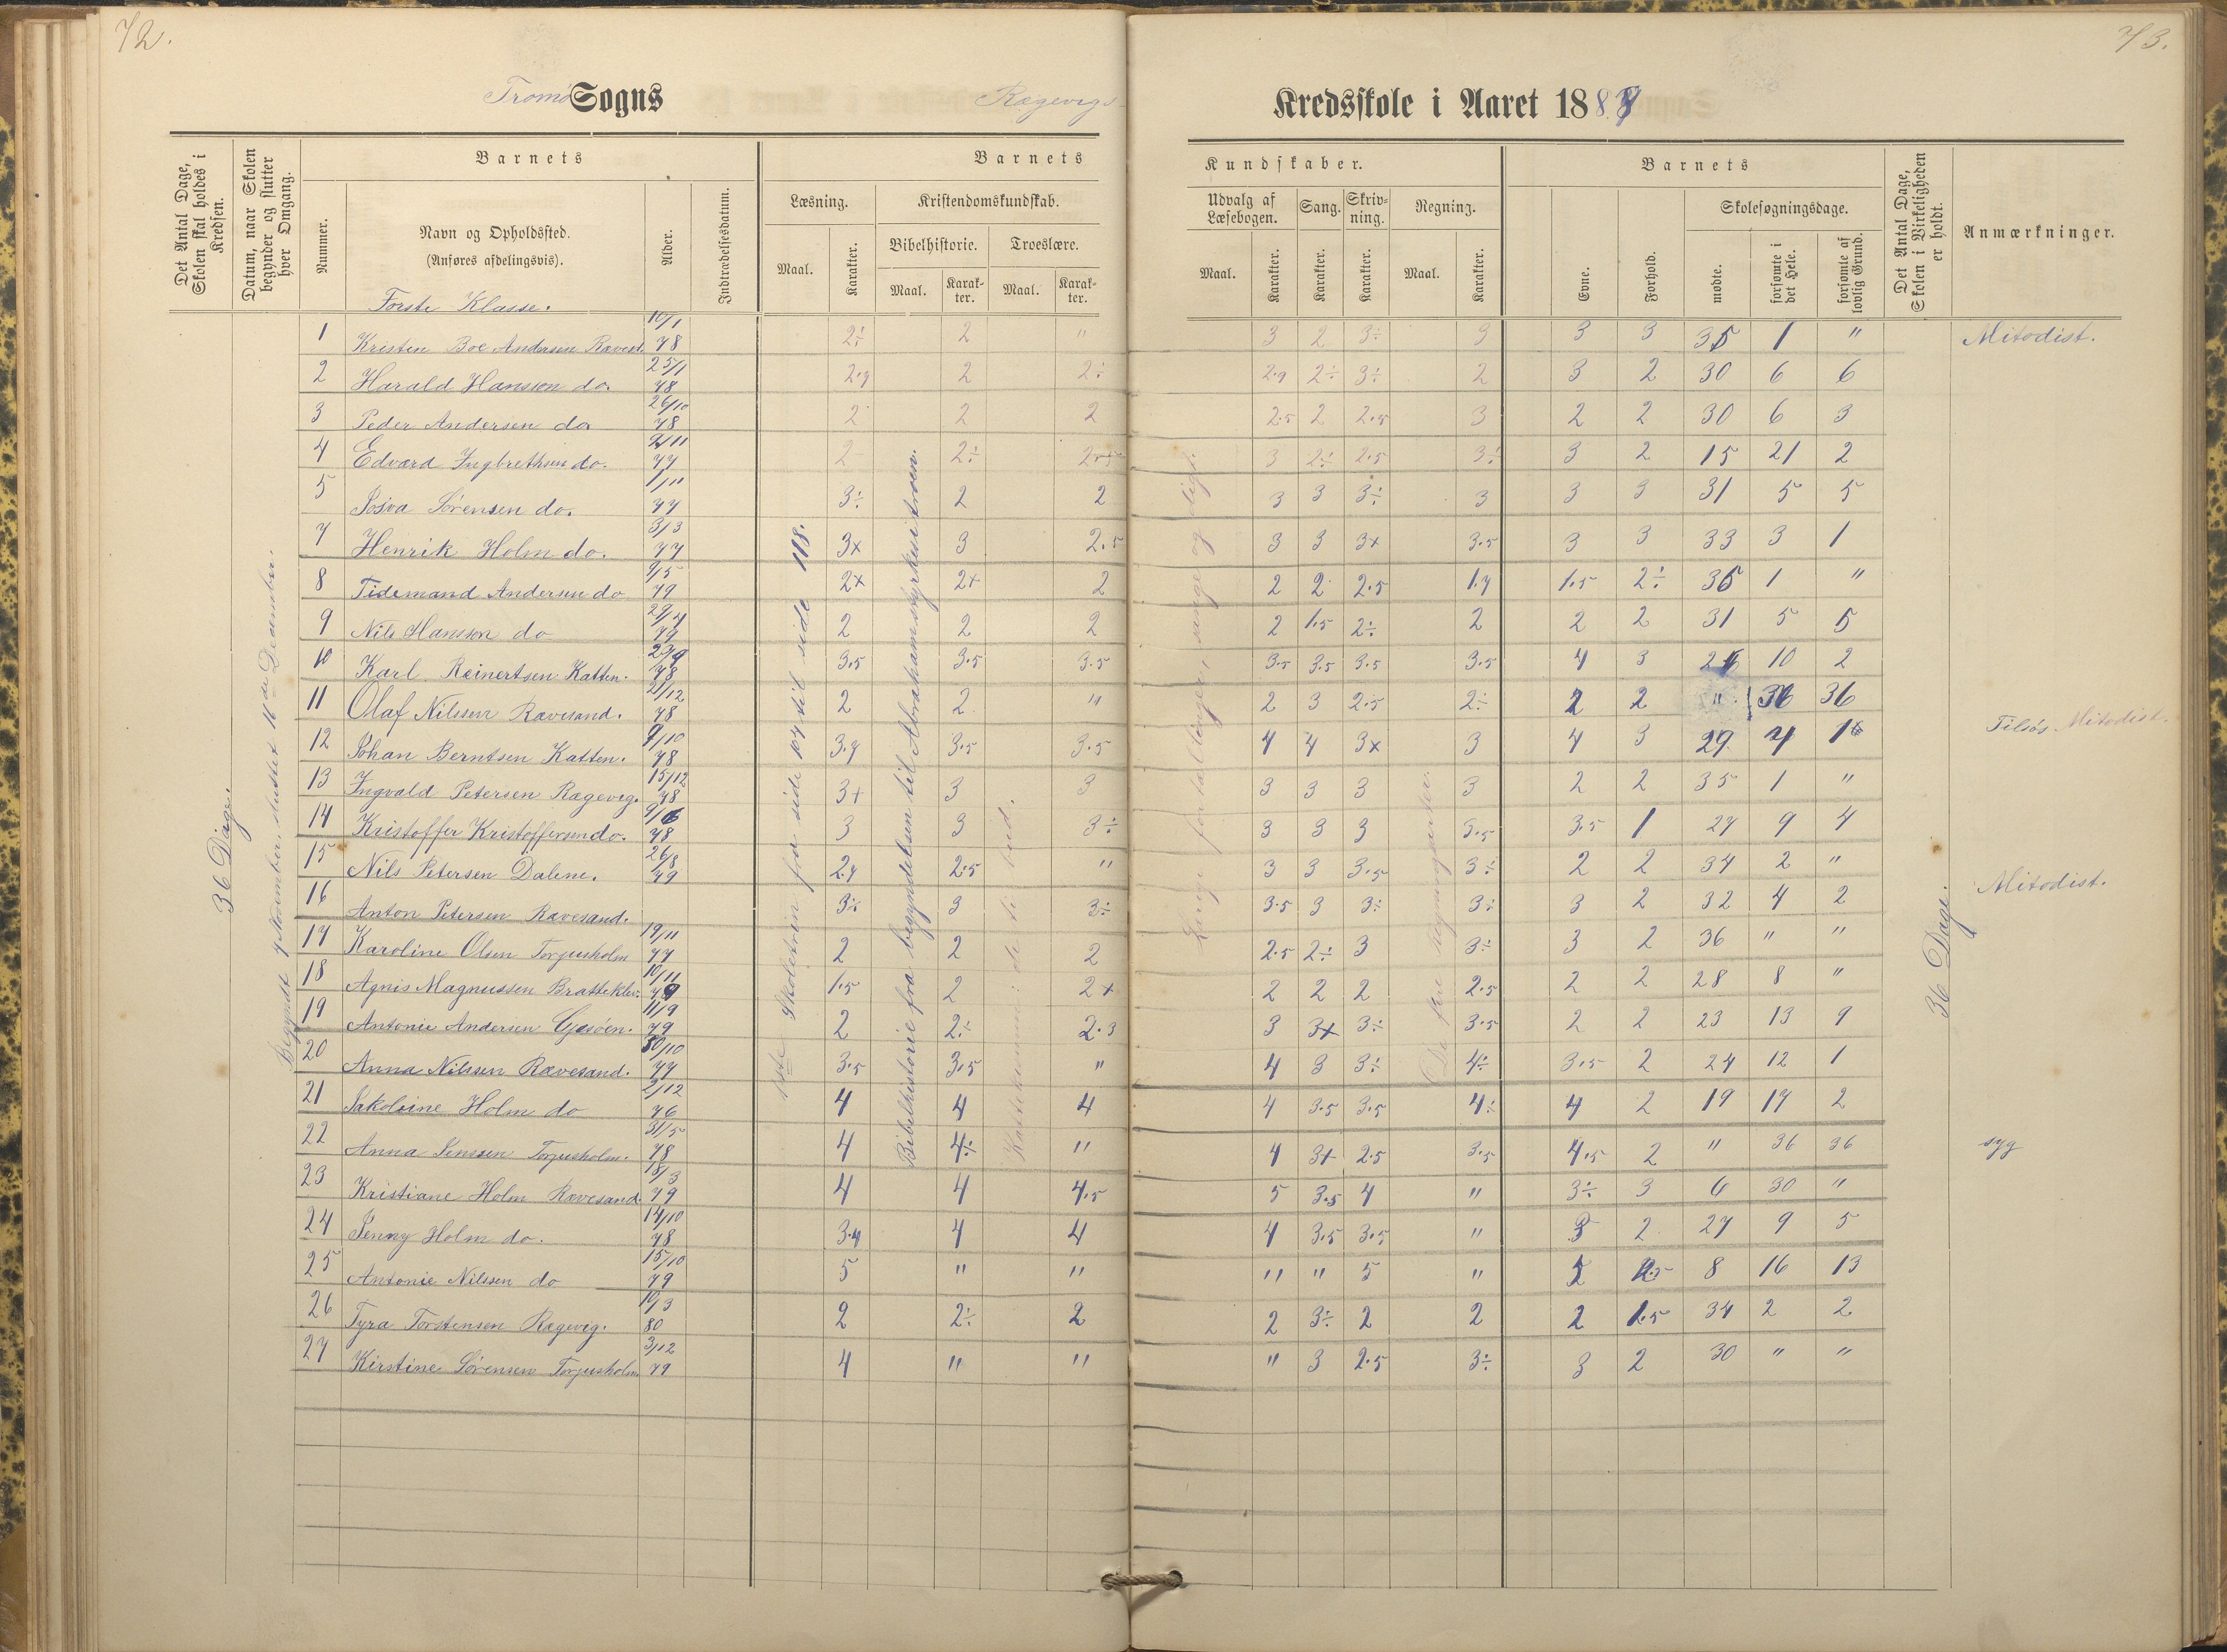 72.
73.
Tromø Sogns Rægevigs
Kredsskole i Aaret 188
Det Antal Dage, Skolen skal holdes i Kredsen.
Datum, naar Skolen begynder og slutter hver Omgang.
Barnets
Nummer.
Navn og Opholdssted.
(Anføres afdelingsvis).
Alder.
Indtrædelsesdatum.
Barnets Kundskaber.
Læsning.
Maal.
Karakter.
Kristendomskundskab.
Bibelhistorie.
Maal.
Karakter.
Troeslære.
Maal.
Karakter.
Udvalg af Læsebogen.
Maal.
Karakter.
Sang.
Karakter.
Skrivning.
Karakter.
Regning.
Maal.
Karakter.
Barnets
Evne.
Forhold.
Skolesøgningsdage.
mødte.
forsømte i det Hele.
forsømte af lovlig Grund.
Det Antal Dage, Skolen i Virkeligheden er holdt.
Anmærkninger.
36 Dage.
Begyndt November, sluttet December.
Første Klasse.
1 Kristen Boe Andersen Ravesd. 10/1 78 2÷ 2 " 3 2 3÷ 3 3 3 35 1 " Mitodist.
2 Harald Hanson do. 25/1 78 2.7 2 2÷ 2.7 2÷ 3÷ 2 3 2 30 6 6
3 Peder Andersen do 26/10 78 2 2 2 2.5 2 2.5 3 2 2 30 6 3
4 Edvard Ingbrethsen do. 77 2 2÷ 3 2÷ 2.5 3÷ 3 2 15 21 2
5 Josva Sørensen do. 1/11 77 3÷ 2 2 3 3 3÷ 3 3 3 31 5 5
7 Henrik Holm do. 3/3 77 3x 3 2.5 3 3 3x 3.5 3 3 33 3 1
8 Tidemand Andersen do 9/5 79 2x 2x 2 2 2 2.5 1.7 1.5 2÷ 35 1 "
9 Nils Hansson do 79 2 2 2 2 1.5 2÷ 2 2 2 31 5 5
10 Karl Reinertsen Katten. 29/9 78 3.5 3.5 3.5 3.5 3.5 3.5 3.5 4 3 10 2
11 Olaf Nilssen Ravesand. 21/12 78 2 2 " 2 3 2.5 2÷ 2 2 " 36 36 Mitodist.
12 Johan Berntsen Katten. 9/10 78 3.7 3.5 3.5 4 4 3x 3 4 3 29 7
13 Ingvald Petersen Rægevig. 15/12 78 3+ 3 3 3 3 3 3 2 2 35 1 "
14 Kristoffer Kristoffersen do. 9/6 78 3 3 3÷ 3 3 3 3.5 3.5 1 27 9 4
15 Nils Petersen Dalene. 26/8 79 2.7 2.5 " 3 3 3.5 3÷ 2 2 34 2 " Mitodist.
16 Anton Petersen Ravesand. 3÷ 3 3÷ 3.5 3 3÷ 3÷ 3 2 32 4 2
17 Karoline Olsen Torjusholm 19/11 77 2 2 2 2.5 2÷ 3 3÷ 3 2 36 " "
18 Agnis Magnussen Bratteklev. 10/11 79 1.5 2 2+ 2 2 2 2.5 2 2 28 8 "
19 Antonie Andersen Gjesøen. 11/9 79 2 2÷ 2.3 3 3+ 3÷ 3.5 2 2 23 13 9
20 Anna Nilssen Ravesand. 30/10 77 3.5 3.5 " 4 3 3÷ 4÷ 3.5 2 24 12 1
21 Jakobine Holm do 2/12 76 4 4 4 4 3.5 3.5 4÷ 4 2 19 17 2
22 Anna Jenssen Torjusholm. 31/5 78 4 4÷ " 4 3+ 2.5 3.5 4.5 2 " 36 36 syg
23 Kristiane Holm Ravesand. 18/3 79 4 4 4.5 5 3.5 4 " 3÷ 3 6 30 "
24 Jenny Holm do. 14/10 78 3.4 4 4 4 3.5 3.5 " 3 2 27 9 5
25 Antonie Nilssen do 15/10 79 5 " " " " 5 " 8 16 13
26 Tyra Torstensen Rægevig. 10/3 80 2 2÷ 2 2 3÷ 2 2 2 1.5 34 2 2
27 Kirstine Sørensen Torjusholm 3/12 79 4 " " " 3 2.5 3÷ 3 2 30 " "
1ste Skoletrin fra side 107 til side 118.
Bibelhistorie fra begyndelsen til Abrahams styrkes i troen.
Katekismus: de ti bud.
fortællinger, sange og
De fire regningsarter.
36 Dage.